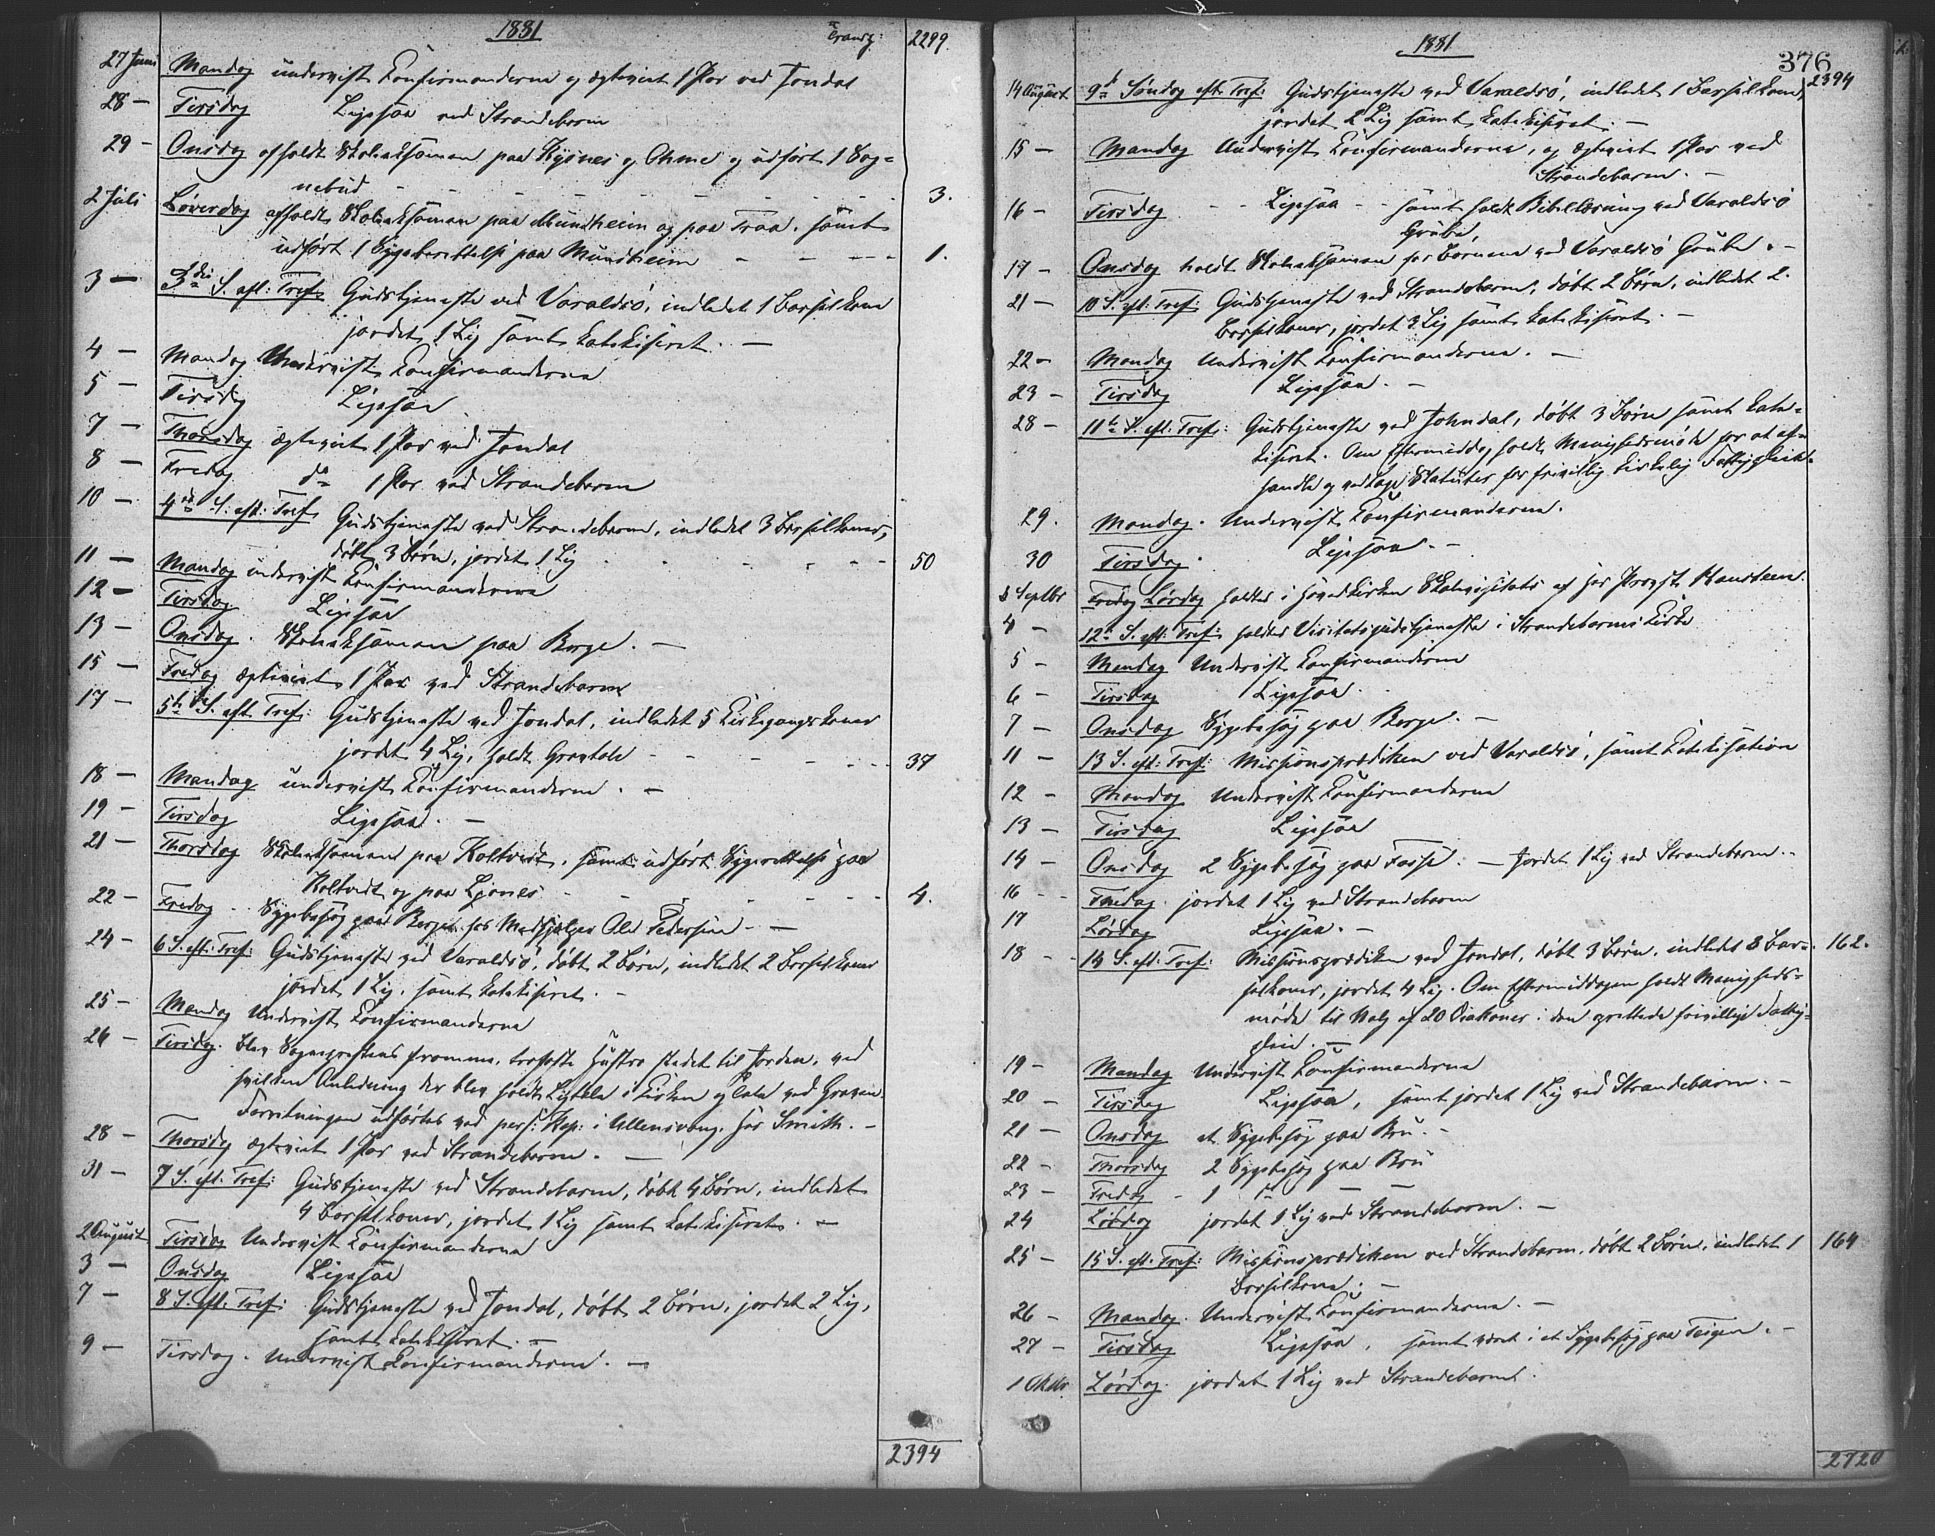 1881
Transp: 2299.
27 Juni Mandag underviist Confirmanderne og ægteviet 1 Par ved Jondal
28 — Tirsdag Ligesaa ved Strandebarm
29 — Onsdag afholdt Skoleeksamen paa Kysnes og Ohme og udført 1 Sog-
nebud - - - - - - 3.
2 Juli Løverdag afholdt Skoleeksamen paa Mundheim og paa Traa, samt
udført 1 Sygeberettelse paa Mundheim - - - - 1.
3 — 3die S. eft: Tref: Gudstjeneste ved Varaldsö, indledet 1 Barselkone
jordet 1 Lig samt katekiseret. —
4 — Mandag Underviist Confirmanderne
5 — Tirsdag Ligesaa
7 — Thorsdag ægteviet 1 Par ved Jondal
8 — Fredag do 1 Par ved Strandebarm
10 — 4de S: eft: Tref Gudstjeneste ved Strandebarm, indledet 3 Barselkoner,
døbt 3 Børn, jordet 1 Lig - - - - 50
11 — Mandag underviist Confirmanderne
12 — Tirsdag Ligesaa
13 — Onsdag. Skoleeksamen paa Berge. —
15 — Fredag ægteviet 1 Par ved Strandebarm
17 — 5te S. eft. Tref: Gudstjeneste ved Jondal, indledet 5 Kirkegangskoner
jordet 4 Lig, holdt Gravtale - - - - 37
18 — Mandag underviist Confirmanderne. —
19 — Tirsdag Ligesaa. —
21 — Thorsdag Skoleeksamen paa Koltvedt, samt udført Sygeberettelse paa
Koltvedt og paa Ljones - - - - - 4.
22 — Fredag Sygebesøg paa Berge hos Medhjelper Ole Pedersen. —
24 — 6 S. eft: Tref: Gudstjeneste ved Varaldsö, døbt 2 Børn, indledet 2 Barselkoner
jordet 1 Lig, samt katekiseret. —
25 — Mandag Underviist Confirmanderne
26 — Tirsdag. blev Sognepræstens fromme, trofaste Hustro stedet til Jorden, ved
hvilken Anledning der blev holdt Ligtale i Kirken og Tale ved Graven.
Forretningen udførtes ved pers: Kap: i Ullensvang, Hr Smith. —
28 — Thorsdag ægteviet 1 Par ved Strandebarm. —
31 — 7 S. eft. Tref: Gudstjeneste ved Strandebarm, døbt 4 Børn, indledet
4 Barselkoner, jordet 1 Lig samt katekiseret. —
2 August Tirsdag Underviist Confirmanderne
3 — Onsdag Ligesaa
7 — 8 S. eft. Tref: Gudstjeneste ved Jondal, døbt 2 Børn, jordet 2 Lig,
samt katekiseret. —
9 — Tirsdag. Underviist Confirmanderne. —
2394
1881
376
2394
14 August 9de Søndag eft. Tref: Gudstjeneste ved Varaldsö, indledet 1 Barselkone,
jordet 2 Lig samt katekiseret. —
15 — Mandag Underviist Confirmanderne, og ægteviet 1 Par ved
Strandebarm. —
16 — Tirsdag - - Ligesaa - - samt holdt Bibellæsning ved Varaldsö
Grube.
17 — Onsdag holdt Skoleeksamen for Børnene ved Varaldsö Grube. —
21 — 10 S. eft: Tref: Gudstjeneste ved Strandebarm, døbt 2 Børn, indledet 2
Barselkoner, jordet 3 Lig samt katekiseret. —
22 — Mandag Underviist Confirmanderne. —
23 — Tirsdag Ligesaa. —
28 — 11te S. eft. Tref: Gudstjeneste ved Johndal, døbt 3 Børn samt kate-
kiseret. Om Eftermiddag holdt Menighedsmøde for at af-
handle og vedtage Statuter for frivillig kirkelig Fattigpleie.
29. Mandag. Underviist Confirmanderne.
30 Tirsdag. Ligesaa. —
3 Septbr Fredag Lørdag holdtes i Hovedkirken Skolevisitats af Hr Provst
4 — 12te S. eft. Tref: holdtes Visitatsgudstjeneste i Strandebarms Kirke
5 — Mandag Underviist Confirmanderne
6 — Tirsdag Ligesaa.
7 — Onsdag Sygebesøg paa Berge. —
11 — 13 S. eft: Tref: Missionsprædiken ved Varaldsö, samt Katekisation
12 — Mandag Underviist Confirmanderne
13 — Tirsdag Ligesaa
14 — Onsdag 2 Sygebesøg paa Fosse. — Jordet 1 Lig ved Strandebarm. —
16 - Fredag. jordet 1 Lig ved Strandebarm
17 Lørdag Ligesaa. —
18 — 14 S. eft: Tref: Missionsprædiken ved Jondal, døbt 3 Børn, indledet 3 Bar- 162.
selkoner, jordet 4 Lig. Om Eftermiddagen holdt Menigheds-
møde til Valg af 20 Diakoner i den oprettede frivillige Fattig-
pleie. —
19 — Mandag Underviist Confirmanderne
20 — Tirsdag Ligesaa, samt jordet 1 Lig ved Strandebarm. —
21 — Onsdag et Sygebesøg paa Bru. —
22 — Thorsdag 2 Sygebesøg paa Bru
23 — Fredag - 1 — — —
24 Lørdag jordet 1 Lig ved Strandebarm. —
25 — 15 S. eft. Tref: Missionsprædiken ved Strandebarm, døbt 2 Børn, indledet 1 164
Barselkone. —
26 — Mandag. Underviist Confirmanderne. —
27 — Tirsdag Ligesaa, samt været i et Sygebesøg paa Teigen. —
1 Oktbr. Lørdag. jordet 1 Lig ved Strandebarm.
2720